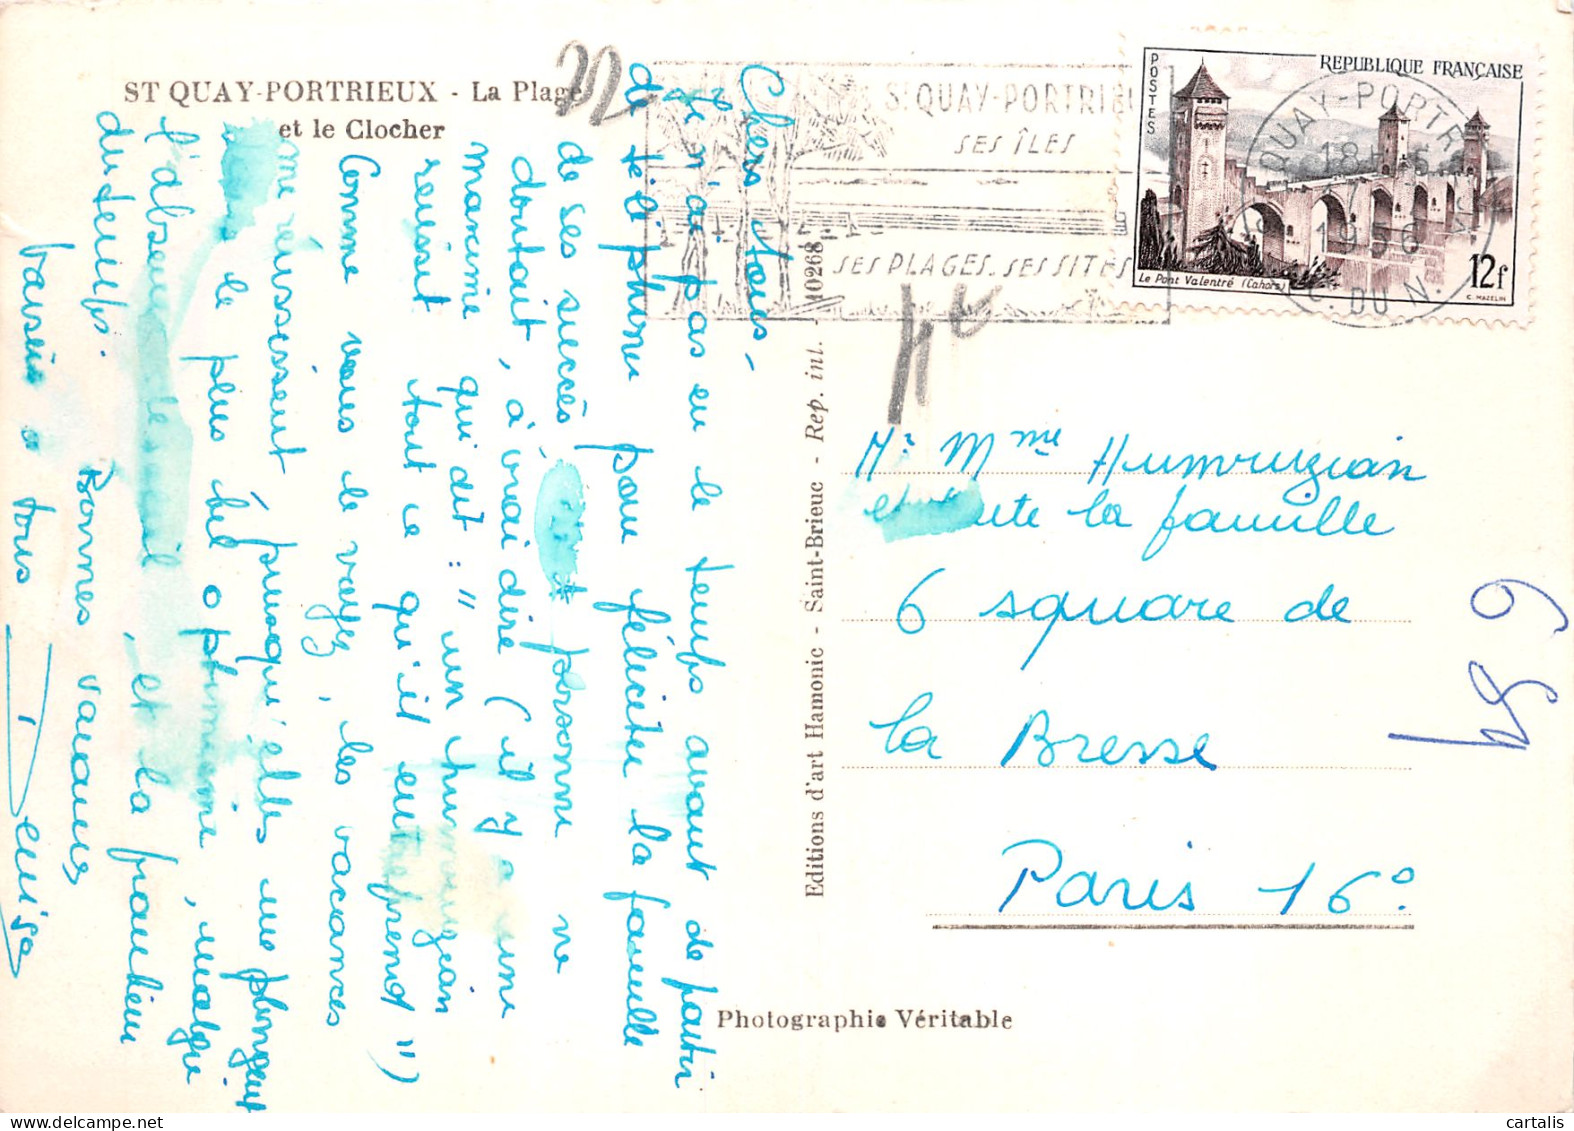 ST QUAY-PORTRIEUX - La Plage
et le Clocher
Chers tous,
Je n'ai pas eu le temps avant de partir
de téléphoner pour féliciter la famille
de ses succès dont personne ne
doutait, à vrai dire (il y a une
maxime qui dit : " un humruzian
réussit tout ce qu'il entreprend ")
Comme vous le voyez, les vacances
me réussissent, puisqu'elles me plongent
dans le plus bel optimisme, malgré
l'absence de soleil, et la fraicheur
du temps.
Bonnes vacances
Baisers à tous
Denise
Editions d'art Hamonic - Saint-Brieuc - Rep. int. - 10268
Photographie Véritable
ST QUAY-PORTRIEUX
SES ÎLES
SES PLAGES. SES SITES
QUAY-PORTRIEUX
18H
1956
C. DU N.
POSTES
REPUBLIQUE FRANÇAISE
Le Pont Valentré (Cahors)
12f
C. MAZELIN
Mr Mme Humruzian
et toute la famille
6 square de
la Bresse
Paris 16°
cartalis